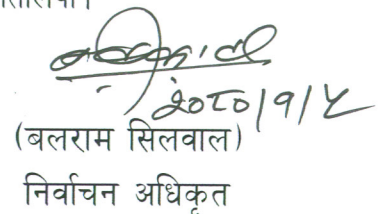 २०८०|१|५
(बलराम सिलवाल)
निर्वाचन अधिकृत